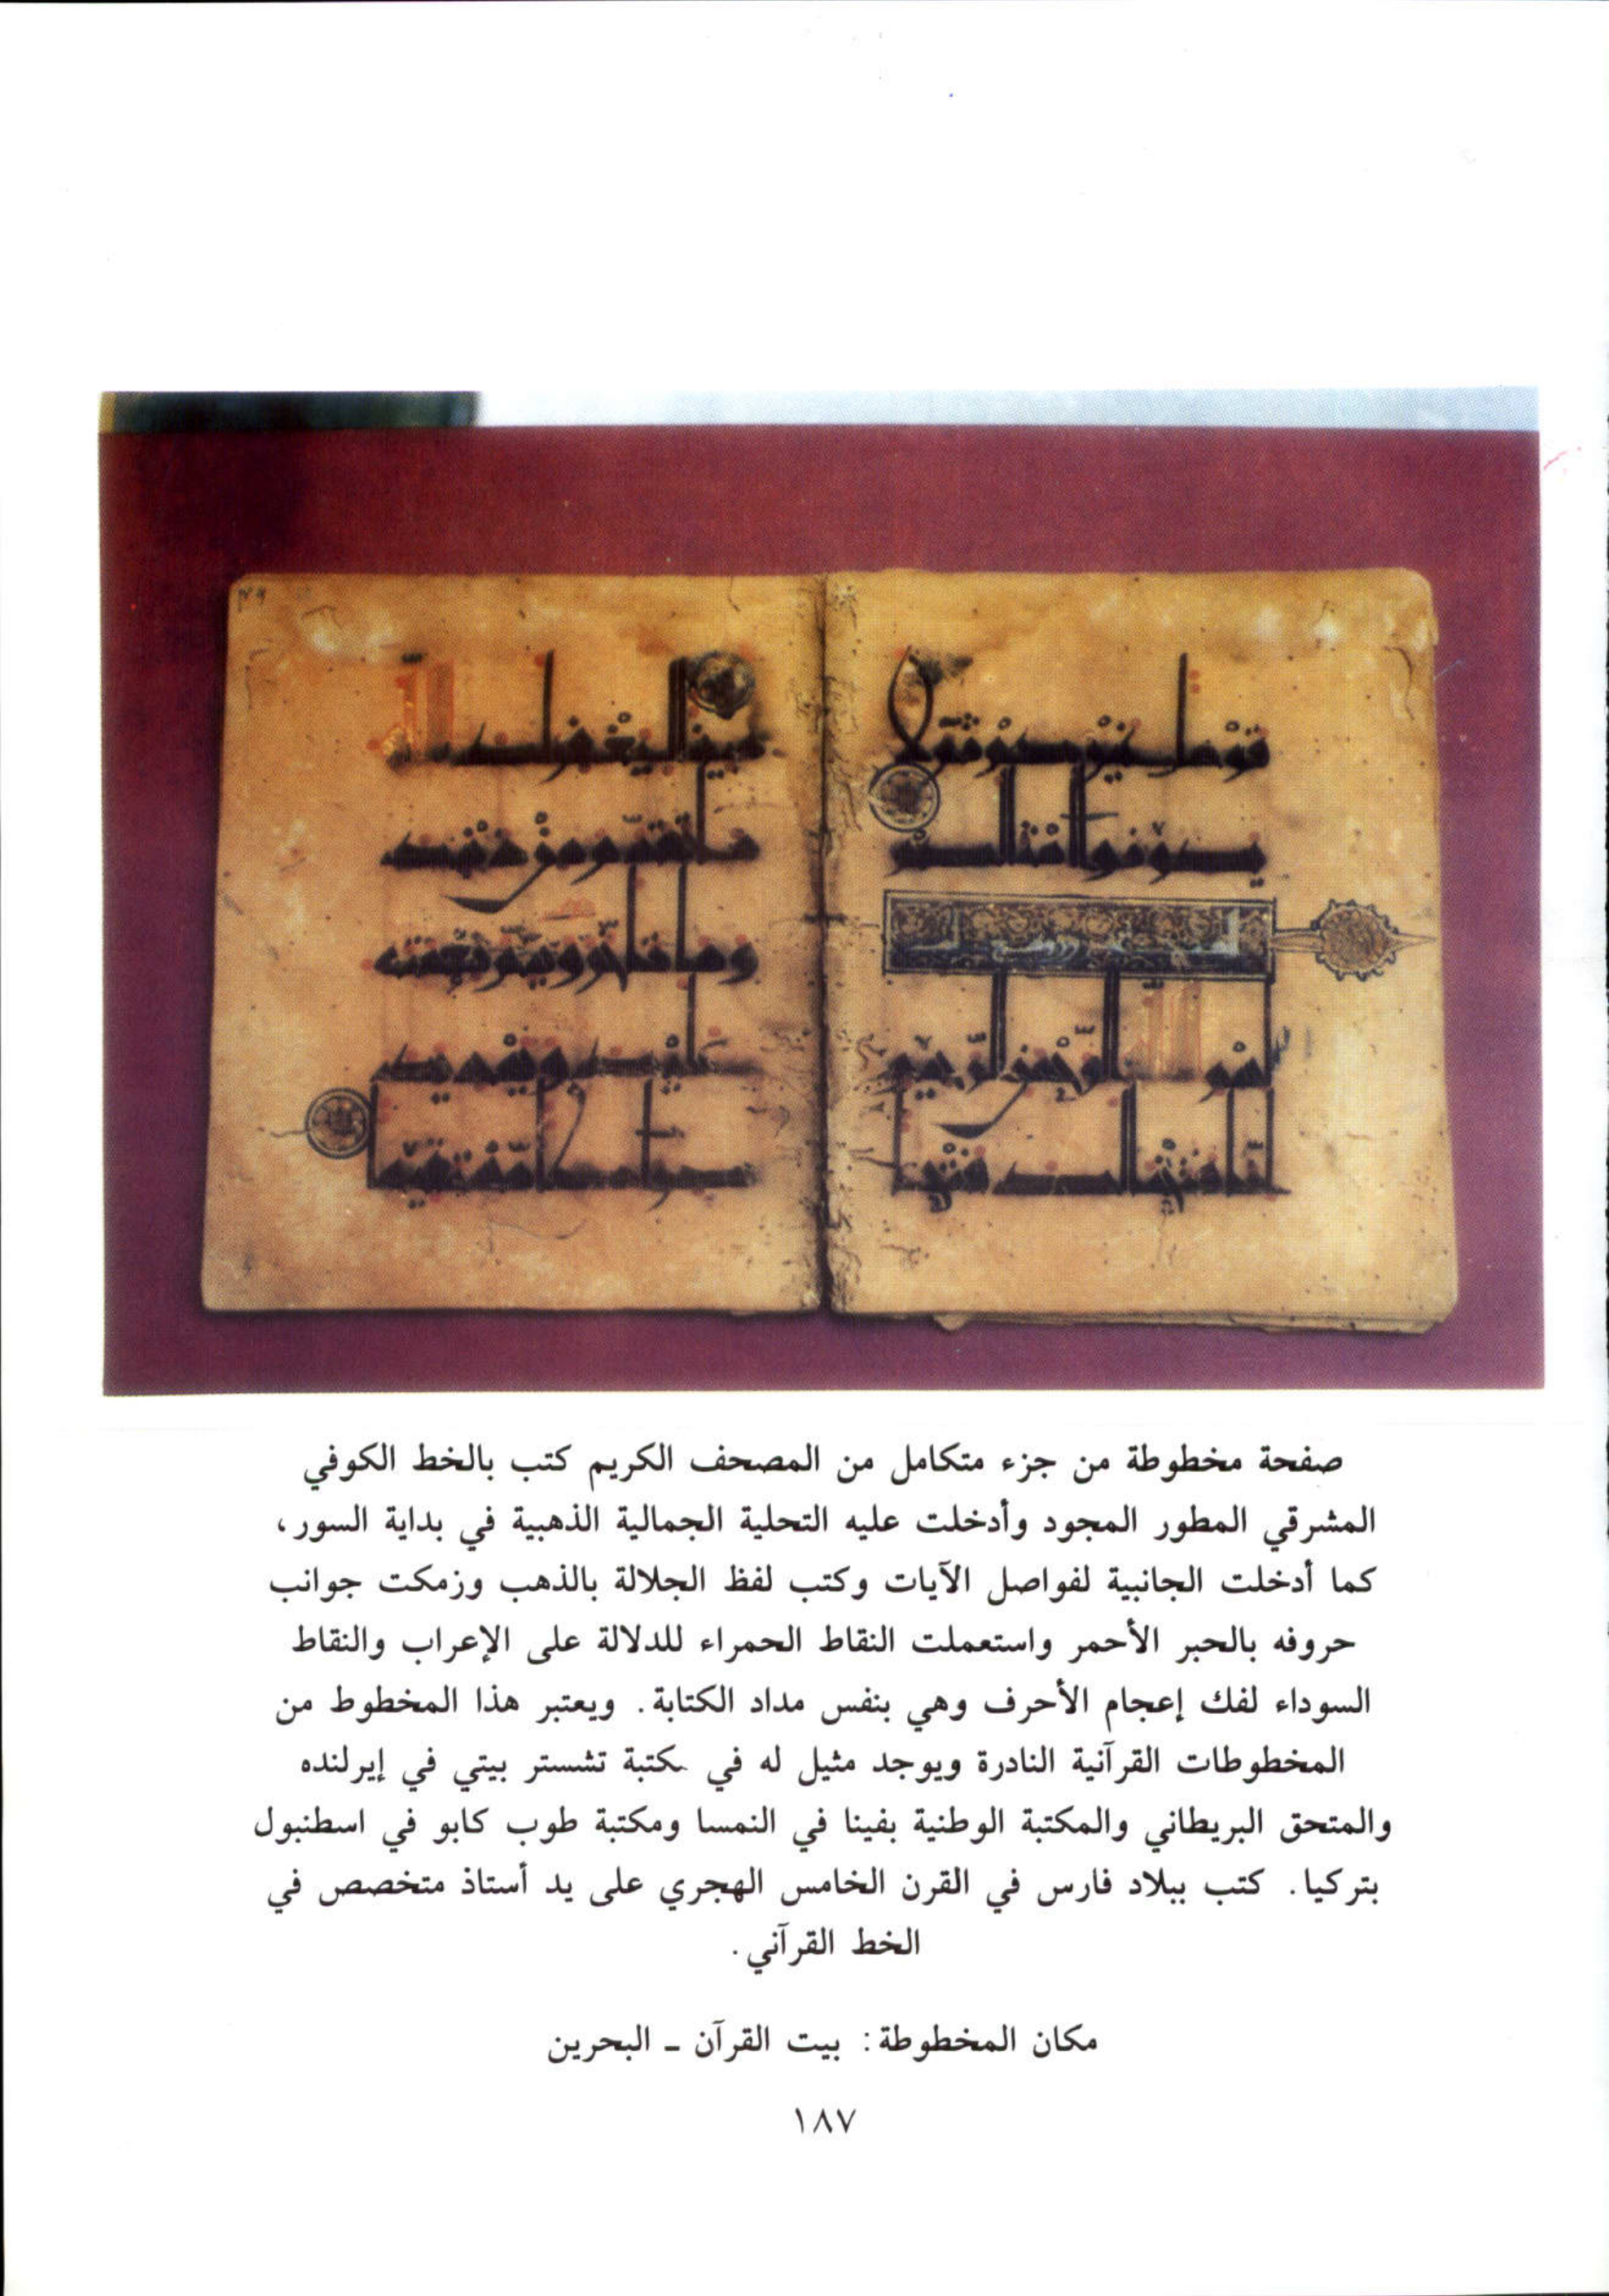 قوما غيركم ثم لا
يكونوا امثالكم
بسم الله الرحمن الرحيم
انا فتحنا لك فتحا
مبينا ليغفر لك الله
ما تقدم من ذنبك
وما تاخر ويتم نعمته
عليك ويهديك
صراطا مستقيما
صفحة مخطوطة من جزء متكامل من المصحف الكريم كتب بالخط الكوفي
المشرقي المطور المجود وأدخلت عليه التحلية الجمالية الذهبية في بداية السور،
كما أدخلت الجانبية لفواصل الآيات وكتب لفظ الجلالة بالذهب وزمكت جوانب
حروفه بالحبر الأحمر واستعملت النقاط الحمراء للدلالة على الإعراب والنقاط
السوداء لفك إعجام الأحرف وهي بنفس مداد الكتابة. ويعتبر هذا المخطوط من
المخطوطات القرآنية النادرة ويوجد مثيل له في مكتبة تشستر بيتي في إيرلنده
والمتحق البريطاني والمكتبة الوطنية بفينا في النمسا ومكتبة طوب كابو في اسطنبول
بتركيا. كتب ببلاد فارس في القرن الخامس الهجري على يد أستاذ متخصص في
الخط القرآني.
مكان المخطوطة: بيت القرآن ـ البحرين
١٨٧